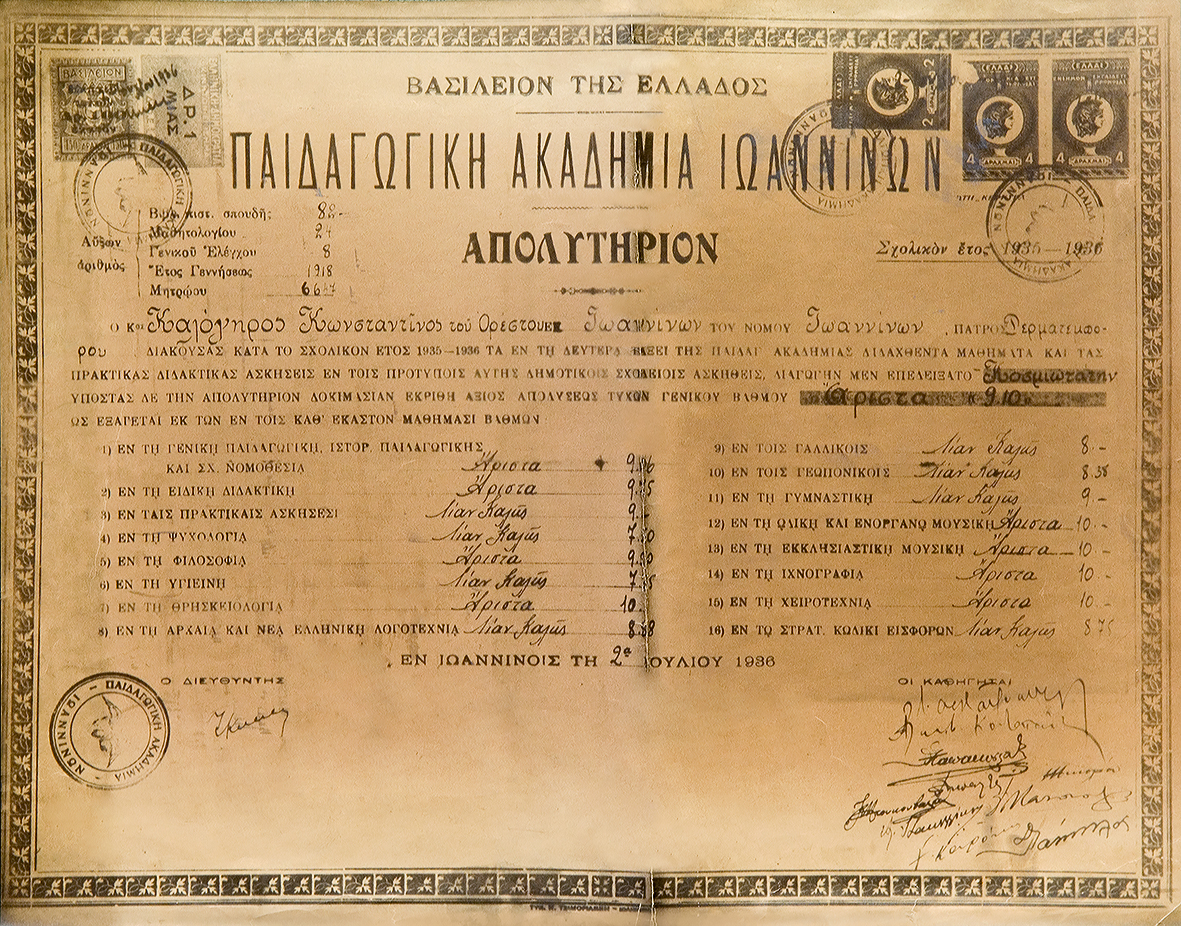 ΒΑΣΙΛΕΙΟΝ ΤΗΣ ΕΛΛΑΔΟΣ
ΠΑΙΔΑΓΩΓΙΚΗ ΑΚΑΔΗΜΙΑ ΙΩΑΝΝΙΝΩΝ
ΑΠΟΛΥΤΗΡΙΟΝ
Σχολικὸν ἔτος 1935—1936
Αὔξων ἀριθμὸς
Βιβλ. πιστ. σπουδῆς: 82-
Μαθητολογίου 24
Γενικοῦ Ἐλέγχου 8
Ἔτος Γεννήσεως 1918
Μητρῴου
Ο Κος Καλόγηρος Κωνσταντῖνος τοῦ Ὀρέστου ΕΚ Ἰωαννίνων ΤΟΥ ΝΟΜΟΥ Ἰωαννίνων, ΠΑΤΡΟΣ Δερματεμπο-
ρου ΔΙΑΚΟΥΣΑΣ ΚΑΤΑ ΤΟ ΣΧΟΛΙΚΟΝ ΕΤΟΣ 1935—1936 ΤΑ ΕΝ ΤΗ ΔΕΥΤΕΡΑ ΤΑΞΕΙ ΤΗΣ ΠΑΙΔΑΓ ΑΚΑΔΗΜΙΑΣ ΔΙΔΑΧΘΕΝΤΑ ΜΑΘΗΜΑΤΑ ΚΑΙ ΤΑΣ
ΠΡΑΚΤΙΚΑΣ ΔΙΔΑΚΤΙΚΑΣ ΑΣΚΗΣΕΙΣ ΕΝ ΤΟΙΣ ΠΡΟΤΥΠΟΙΣ ΑΥΤΗΣ ΔΗΜΟΤΙΚΟΙΣ ΣΧΟΛΕΙΟΙΣ ΑΣΚΗΘΕΙΣ, ΔΙΑΓΩΓΗΝ ΜΕΝ ΕΠΕΔΕΙΞΑΤΟ Κοσμιωτατην
ΥΠΟΣΤΑΣ ΔΕ ΤΗΝ ΑΠΟΛΥΤΗΡΙΟΝ ΔΟΚΙΜΑΣΙΑΝ ΕΚΡΙΘΗ ΑΞΙΟΣ ΑΠΟΛΥΣΕΩΣ ΤΥΧΩΝ ΓΕΝΙΚΟΥ ΒΑΘΜΟΥ Ἄριστα 9.10
ΩΣ ΕΞΑΓΕΤΑΙ ΕΚ ΤΩΝ ΕΝ ΤΟΙΣ ΚΑΘ' ΕΚΑΣΤΟΝ ΜΑΘΗΜΑΣΙ ΒΑΘΜΩΝ
1) ΕΝ ΤΗ ΓΕΝΙΚΗ ΠΑΙΔΑΓΩΓΙΚΗ, ΙΣΤΟΡ. ΠΑΙΔΑΓΩΓΙΚΗΣ
ΚΑΙ ΣΧ. ΝΟΜΟΘΕΣΙΑ Ἄριστα
2) ΕΝ ΤΗ ΕΙΔΙΚΗ ΔΙΔΑΚΤΙΚΗ Ἄριστα
3) ΕΝ ΤΑΙΣ ΠΡΑΚΤΙΚΑΙΣ ΑΣΚΗΣΕΣΙ Λίαν Καλῶς 9
4) ΕΝ ΤΗ ΨΥΧΟΛΟΓΙΑ Λίαν Καλῶς
5) ΕΝ ΤΗ ΦΙΛΟΣΟΦΙΑ Ἄριστα
6) ΕΝ ΤΗ ΥΓΙΕΙΝΗ Λίαν Καλῶς
7) ΕΝ ΤΗ ΘΡΗΣΚΕΙΟΛΟΓΙΑ Ἄριστα 10
8) ΕΝ ΤΗ ΑΡΧΑΙΑ ΚΑΙ ΝΕΑ ΕΛΛΗΝΙΚΗ ΛΟΓΟΤΕΧΝΙΑ Λίαν Καλῶς
9) ΕΝ ΤΟΙΣ ΓΑΛΛΙΚΟΙΣ Λίαν Καλῶς 8.-
10) ΕΝ ΤΟΙΣ ΓΕΩΠΟΝΙΚΟΙΣ Λίαν Καλῶς 8.38
11) ΕΝ ΤΗ ΓΥΜΝΑΣΤΙΚΗ Λίαν Καλῶς 9.-
12) ΕΝ ΤΗ ΩΔΙΚΗ ΚΑΙ ΕΝΟΡΓΑΝΩ ΜΟΥΣΙΚΗ Ἄριστα 10.-
13) ΕΝ ΤΗ ΕΚΚΛΗΣΙΑΣΤΙΚΗ ΜΟΥΣΙΚΗ Ἄριστα 10.-
14) ΕΝ ΤΗ ΙΧΝΟΓΡΑΦΙΑ Ἄριστα 10.-
15) ΕΝ ΤΗ ΧΕΙΡΟΤΕΧΝΙΑ Ἄριστα 10.-
16) ΕΝ ΤΩ ΣΤΡΑΤ. ΚΩΔΙΚΙ ΕΙΣΦΟΡΩΝ Λίαν Καλῶς 8 75
ΕΝ ΙΩΑΝΝΙΝΟΙΣ ΤΗ 2α ΙΟΥΛΙΟΥ 1936
Ο ΔΙΕΥΘΥΝΤΗΣ
ΟΙ ΚΑΘΗΓΗΤΑΙ
ΠΑΙΔΑΓΩΓΙΚΗ ΑΚΑΔΗΜΙΑ - ΙΩΑΝΝΙΝΩΝ
ΒΑΣΙΛΕΙΟΝ
ΔΡ. 1
ΜΙΑΣ
ΕΛΛΑΣ
4 ΔΡΑΧΜΑΙ 4
4 ΔΡΑΧΜΑΙ 4